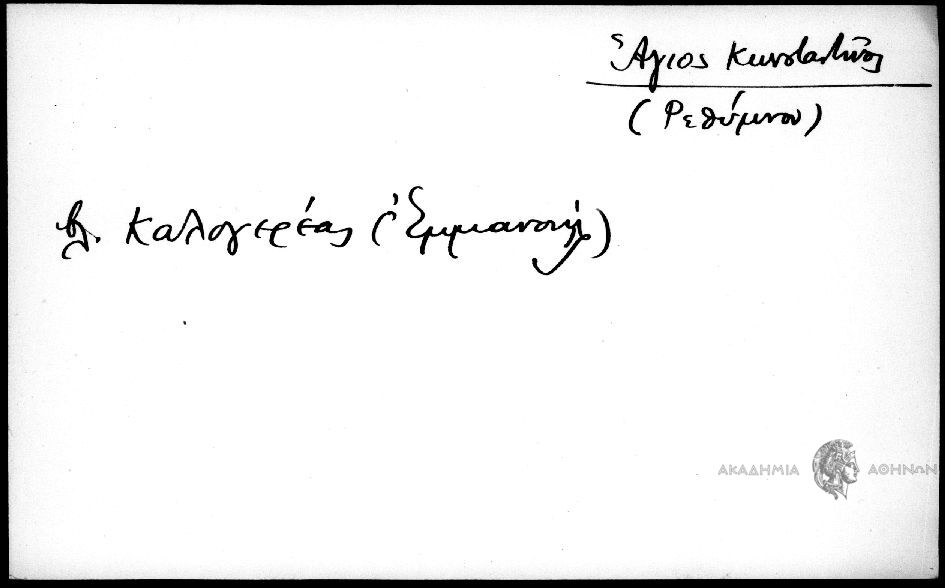 Ἅγιος Κωνσταντῖνος
(Ρεθύμνου)
βλ. Καλογερέας (Ἐμμανουήλ)
ΑΚΑΔΗΜΙΑ ΑΘΗΝΩΝ